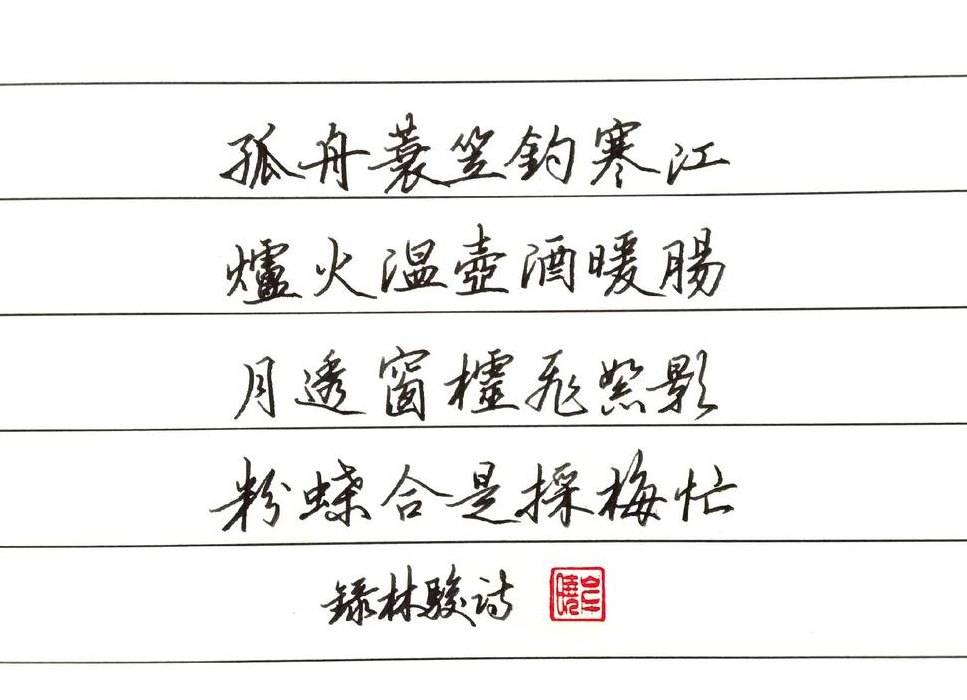 孤舟蓑笠釣寒江
爐火温壺酒暖腸
月透窗櫺飛絮影
粉蝶合是採梅忙
錄林駿詩